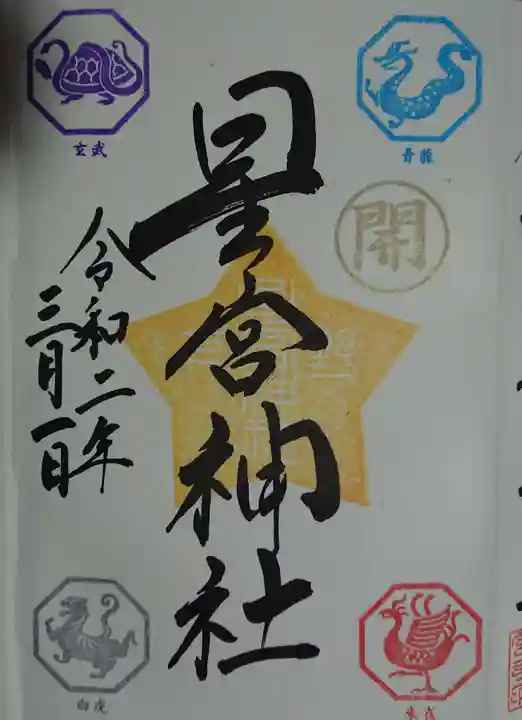 玄武
青龍
開
星宮神社
令和二年
三月一日
白虎